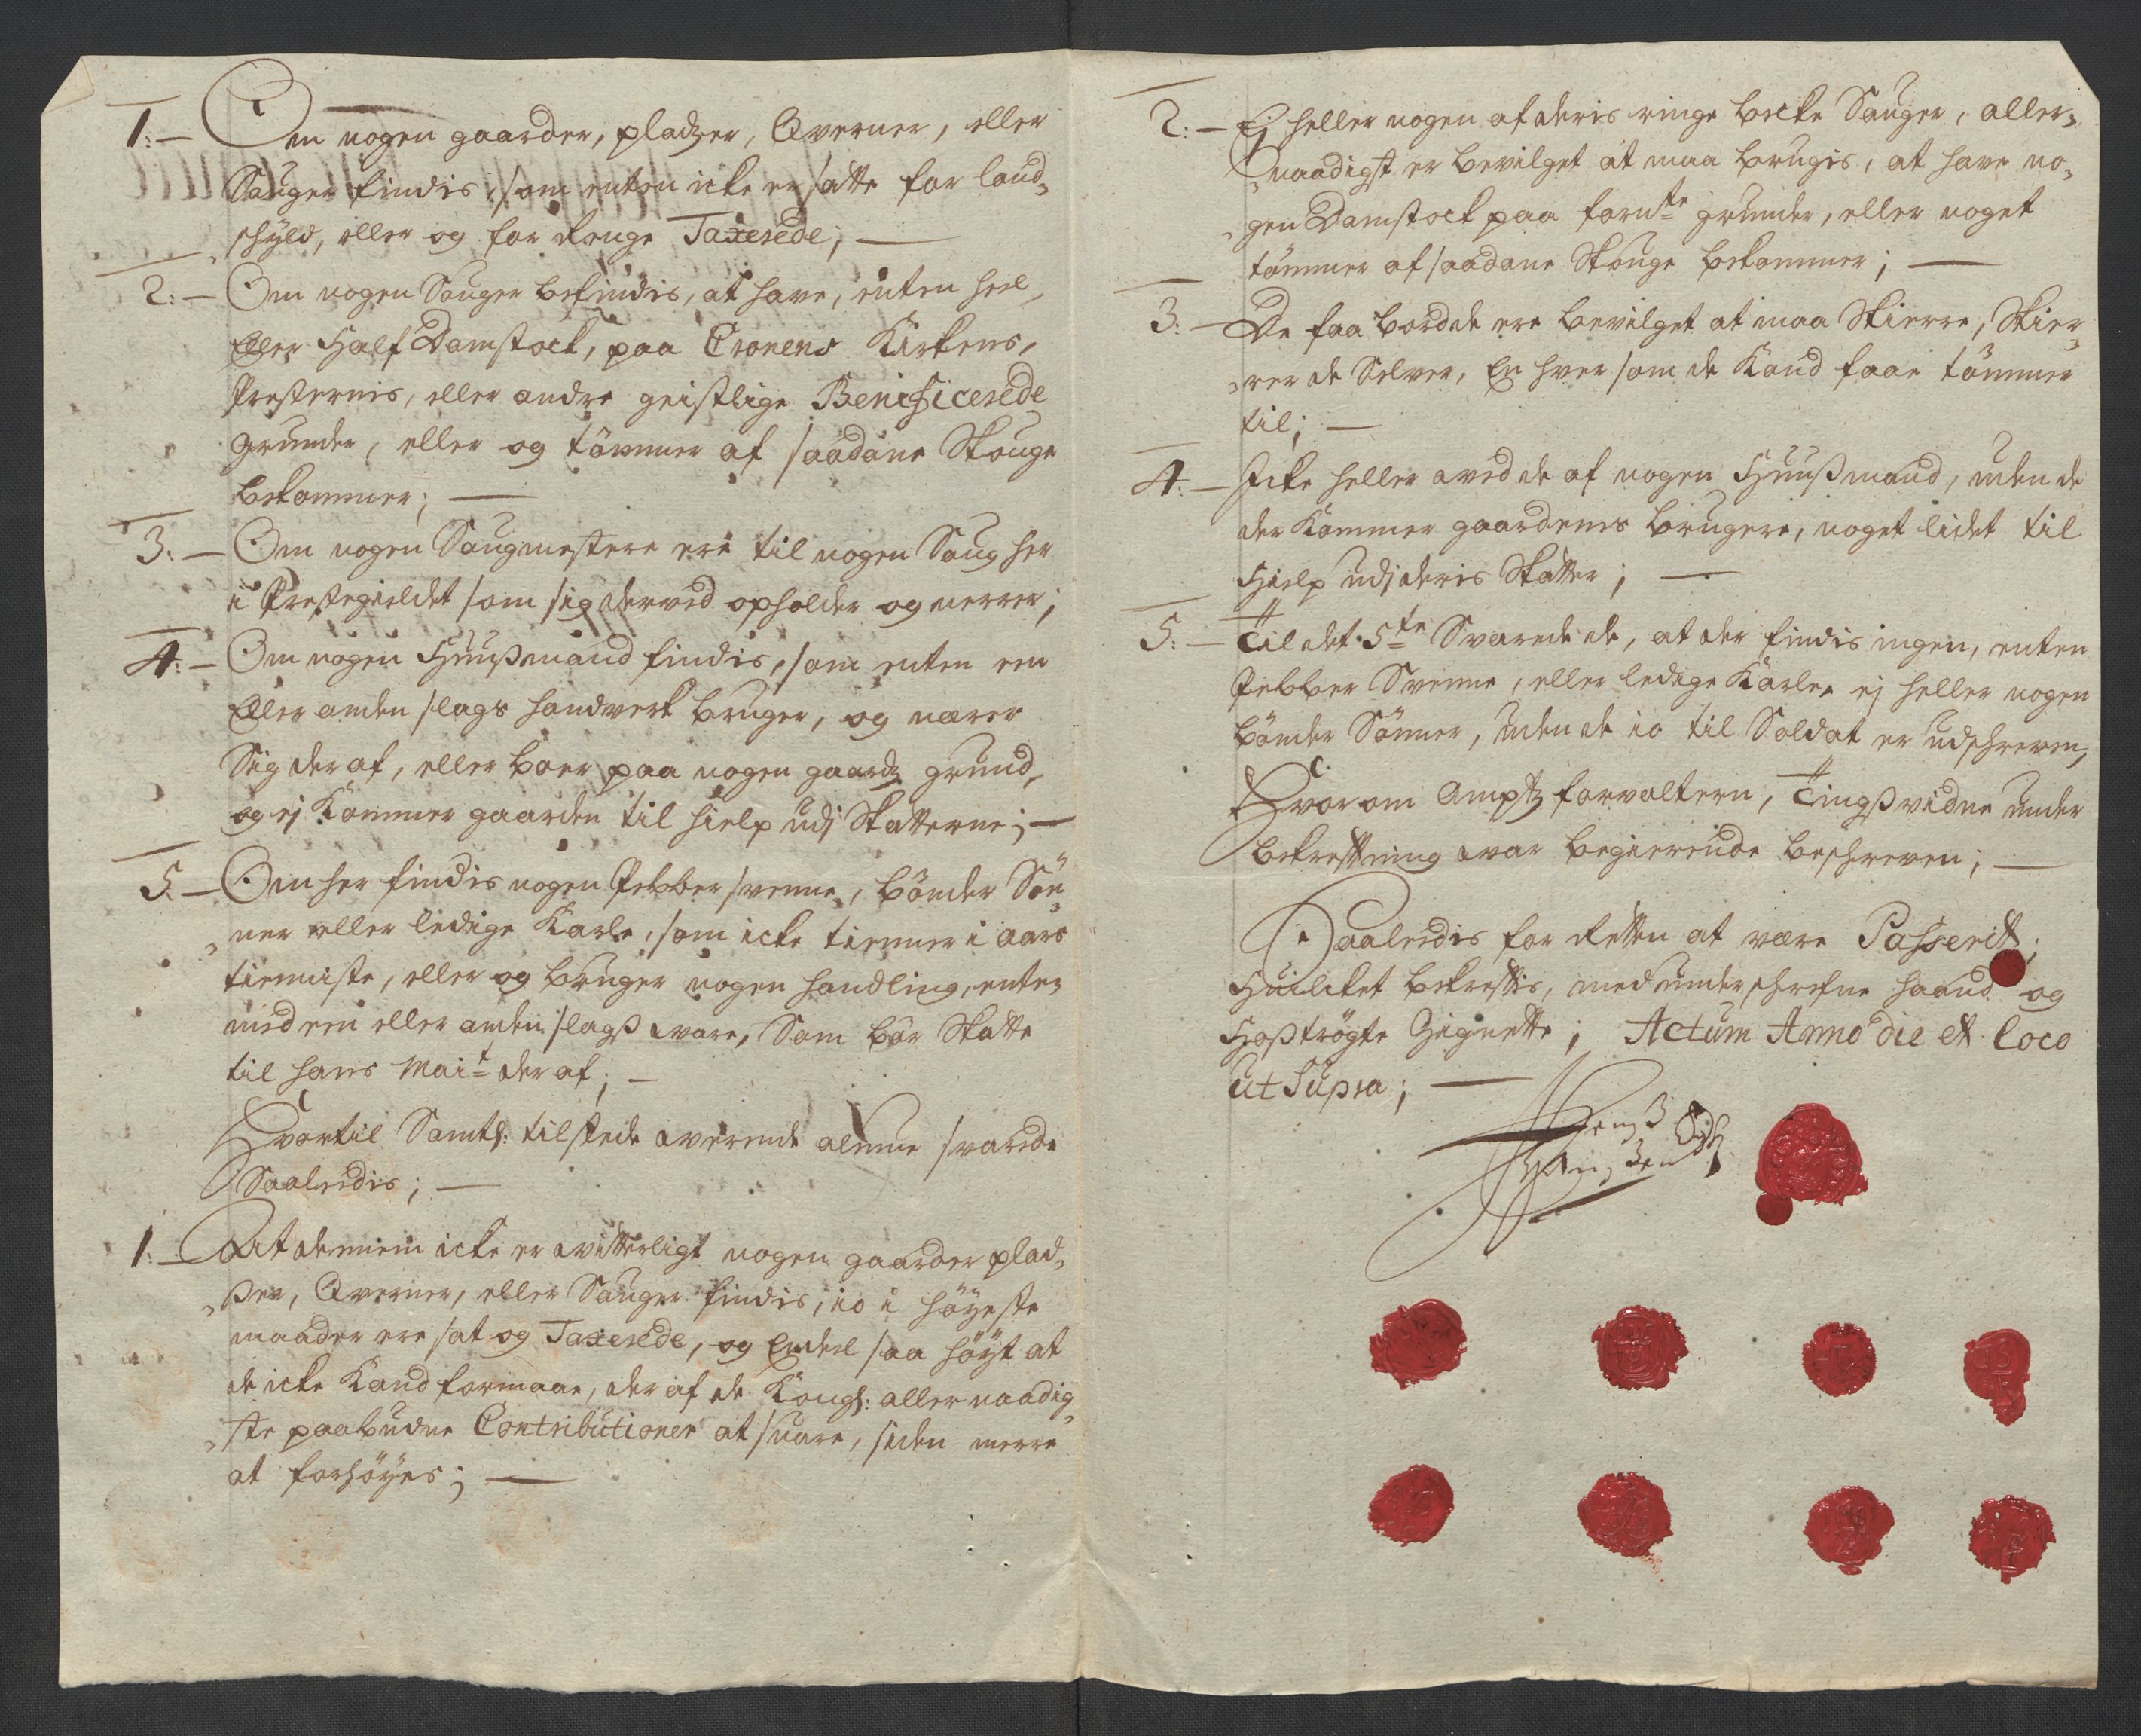 1:— Om nogen gaarder, pladzer, Qverner, eller
Sauger findis, som enten icke er satte for land-
schyld, eller og for ringe Taxerede; —
2:— Om nogen Sauger befindis, at have, enten heel
Eller Half Damstock, paa Cronens Kirkens,
Presternis, eller andre geistlige Benificerede
grunder, eller og tömmer af saadane Skouge
bekommer; —
3:— Om nogen Saugmestere ere til nogen Saug her
i Prestegieldet som sig derved opholder og nerrer;
4:— Om nogen Huußmand findis, som enten een
Eller anden slags handverk bruger, og nærer
Sig der af, eller boer paa nogen gaardz grund,
og ej Kommer gaarden til hielp udj Skatterne; —
5:— Om her findis nogen Pebber svenne, bönder Sön-
ner eller ledige Karle, som icke tienner i aars
tienniste, eller og bruger nogen handling, enten
med een eller anden slagß ware, Som bör Skatte
til hans Mait der af; —
Hvortil Samtl: tilstede werende almue svarede
Saaledis; —
1:— At dennem icke er witterligt nogen gaarder plad-
ßer, Qverner, eller Sauger findis, io i höyeste
maader ere sat og Taxerede, og Endeel saa höyt at
de icke Kand formaae, der af de Kongl: aller naadig-
ste paabudne Contributioner at svare, siden merre
at forhöyes; —
2:— Ej heller nogen af deris ringe becke Sauger, aller-
naadigst er bevilget at maa brugis, at have no-
gen Damstock paa fornte grunder, eller noget
tömmer af saadane Skouge bekommer; —
3:— De faa bord de ere bevilget at maa Skierre, Skier-
rer de Selver, En hver som de Kand faae tömmer
til; —
4:— Icke heller wed de af nogen Huußmand, uden de
der Kommer gaardens brugere, noget lidet til
Hielp udj deris Skatter; —
5:— Til det 5te Svarede de, at der findis ingen, enten
Pebber Svenne, eller ledige Karle, ej heller nogen
bönder Sönner, uden de io til Soldat er udschreven,
Hvorom Amptz forvaltern, Tingßvidne under
bekrefftning war begierende beschreven; —
Saaledis for Retten at være Passerit;
Huilcket bekrefftis, med underschrefne haand og
Hoßtrögte Zignette; Actum Anno die et loco
ut Supra; —